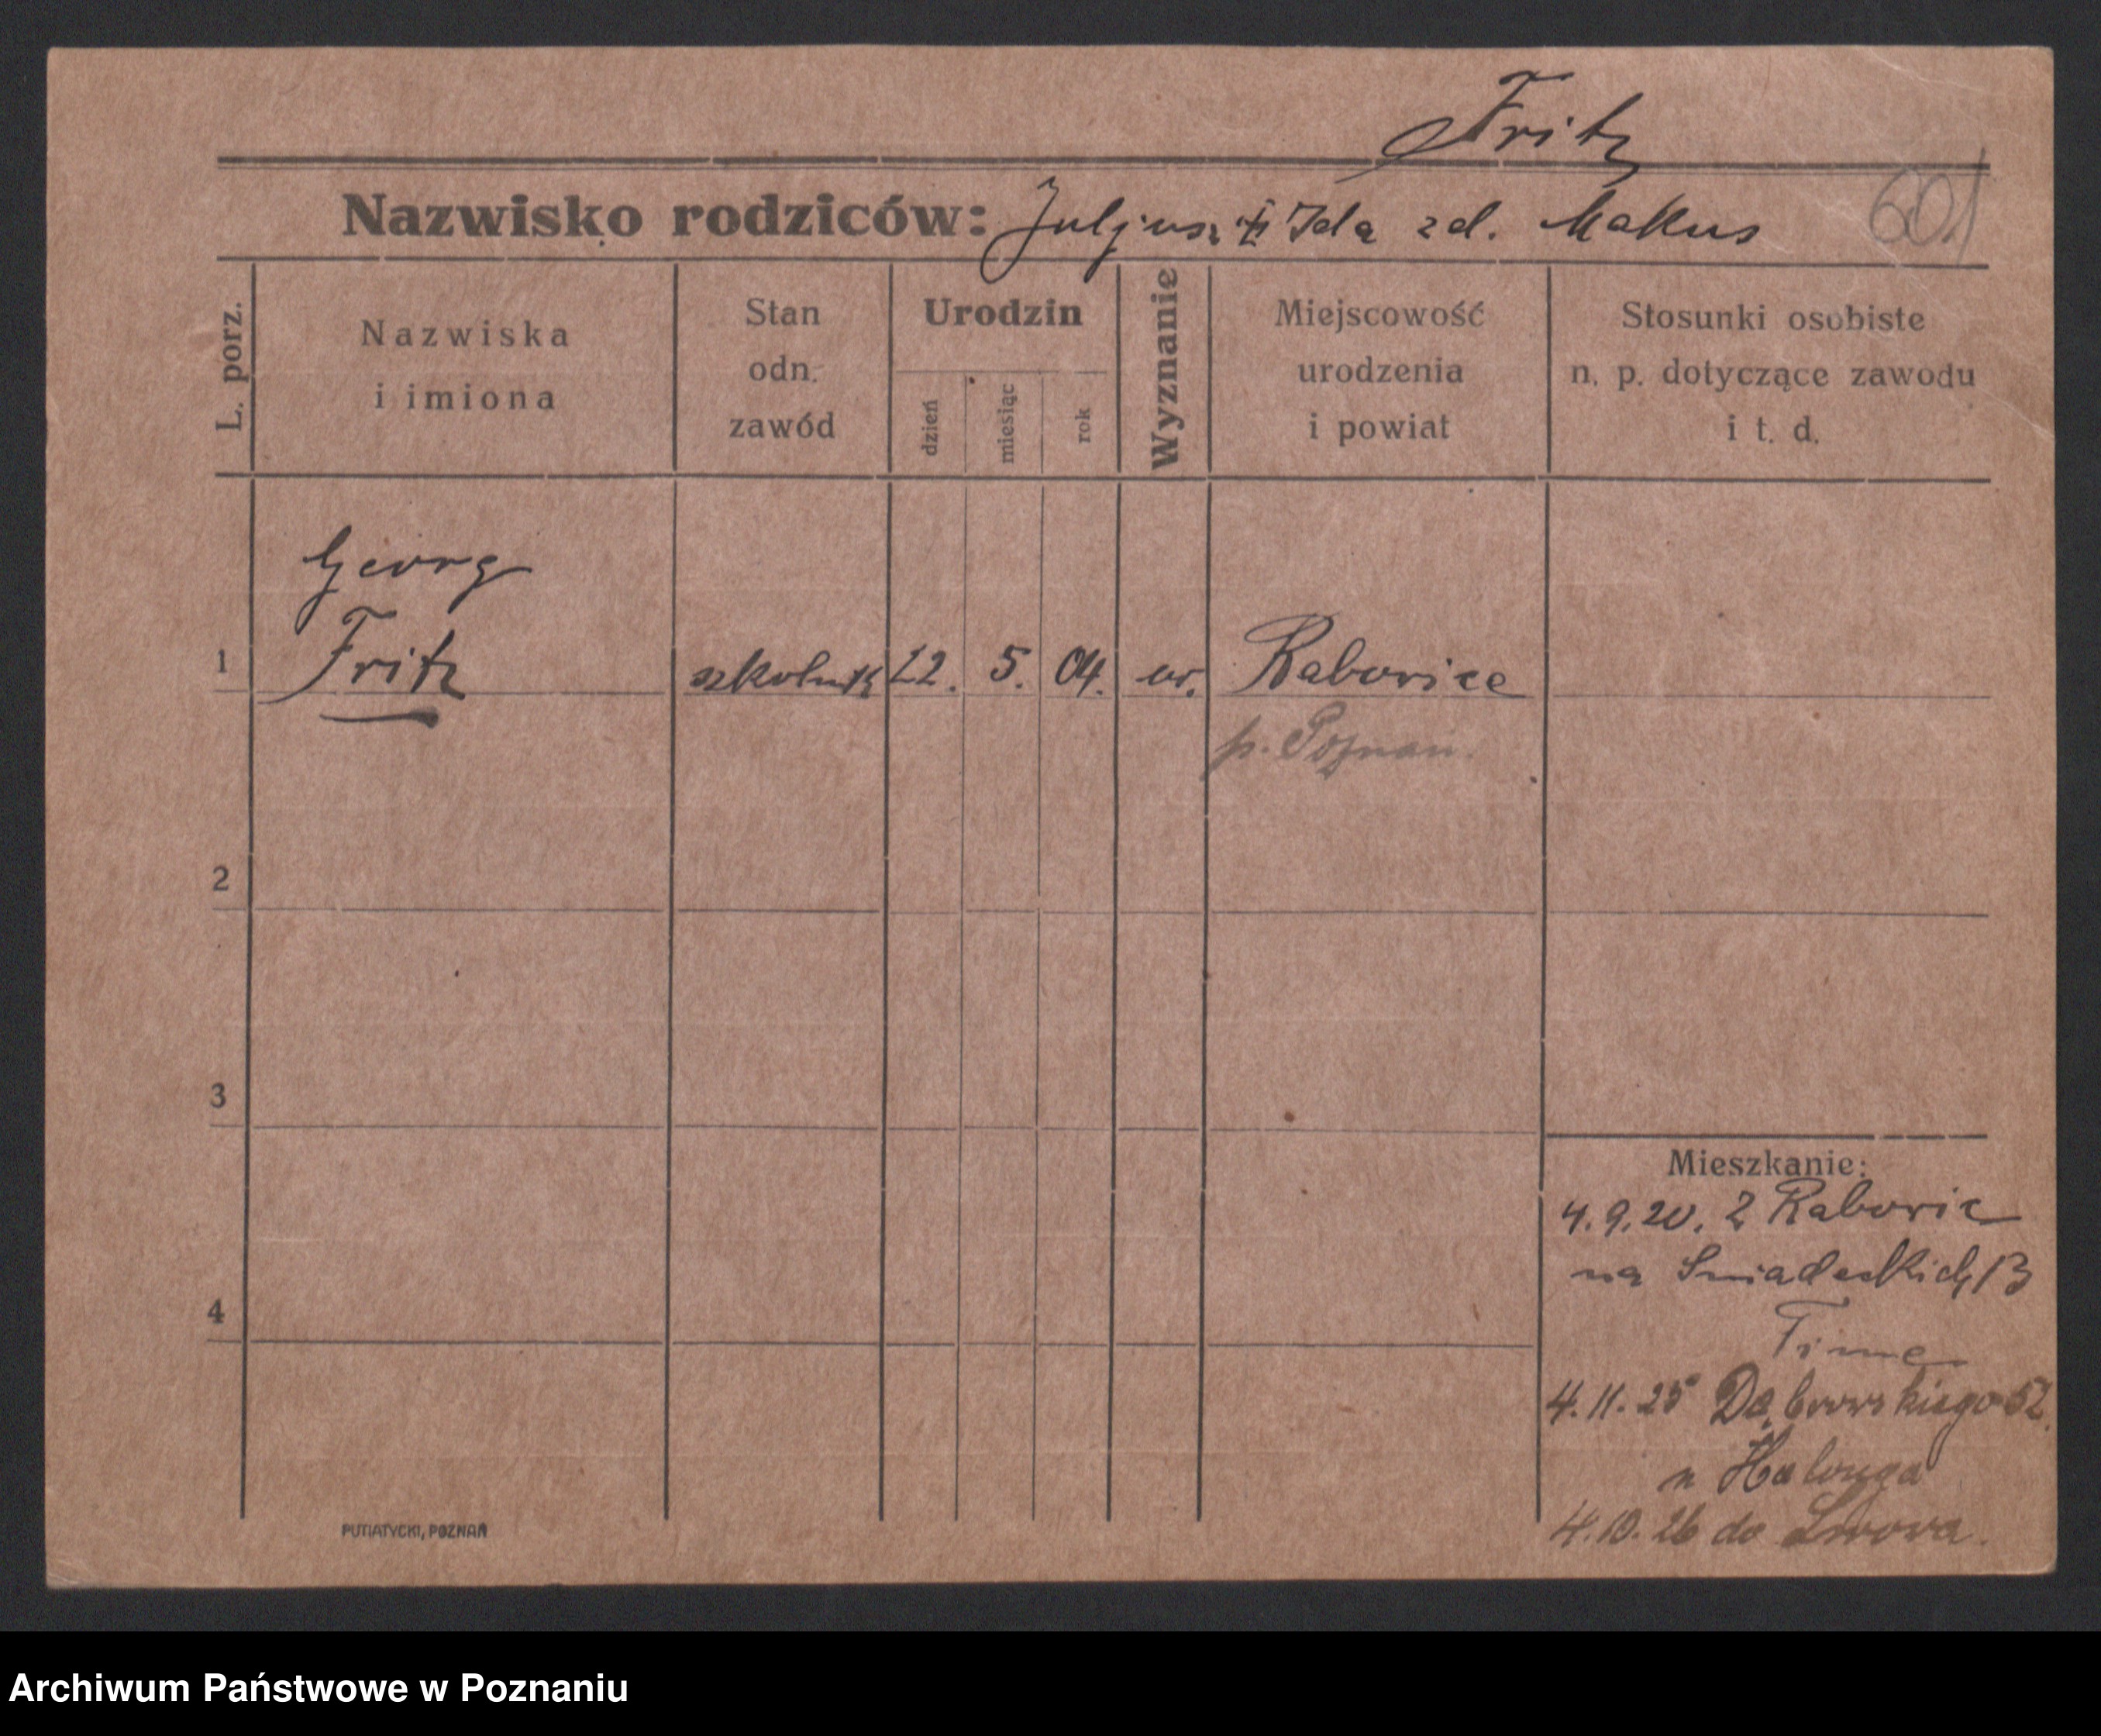 Fritz
Nazwisko rodziców: Juljusz i Ida zd. Makus
601
L. porz.
Nazwiska
i imiona
Stan
odn.
zawód
Urodzin
dzień
miesiąc
rok
Wyznanie
Miejscowość
urodzenia
i powiat
Stosunki osobiste
n. p. dotyczące zawodu
i t. d.
Georg
1 Fritz szkolnik 22. 5. 04. ew. Raborice
p. Poznań
2
3
4
Mieszkanie:
4.9.20. Z Raboric
na Sniadeckich 13
Time
4.11.25 Dąbrowskiego 52.
n
4.10.26 do Lwowa.
PUTIATYCKI, POZNAŃ
Archiwum Państwowe w Poznaniu